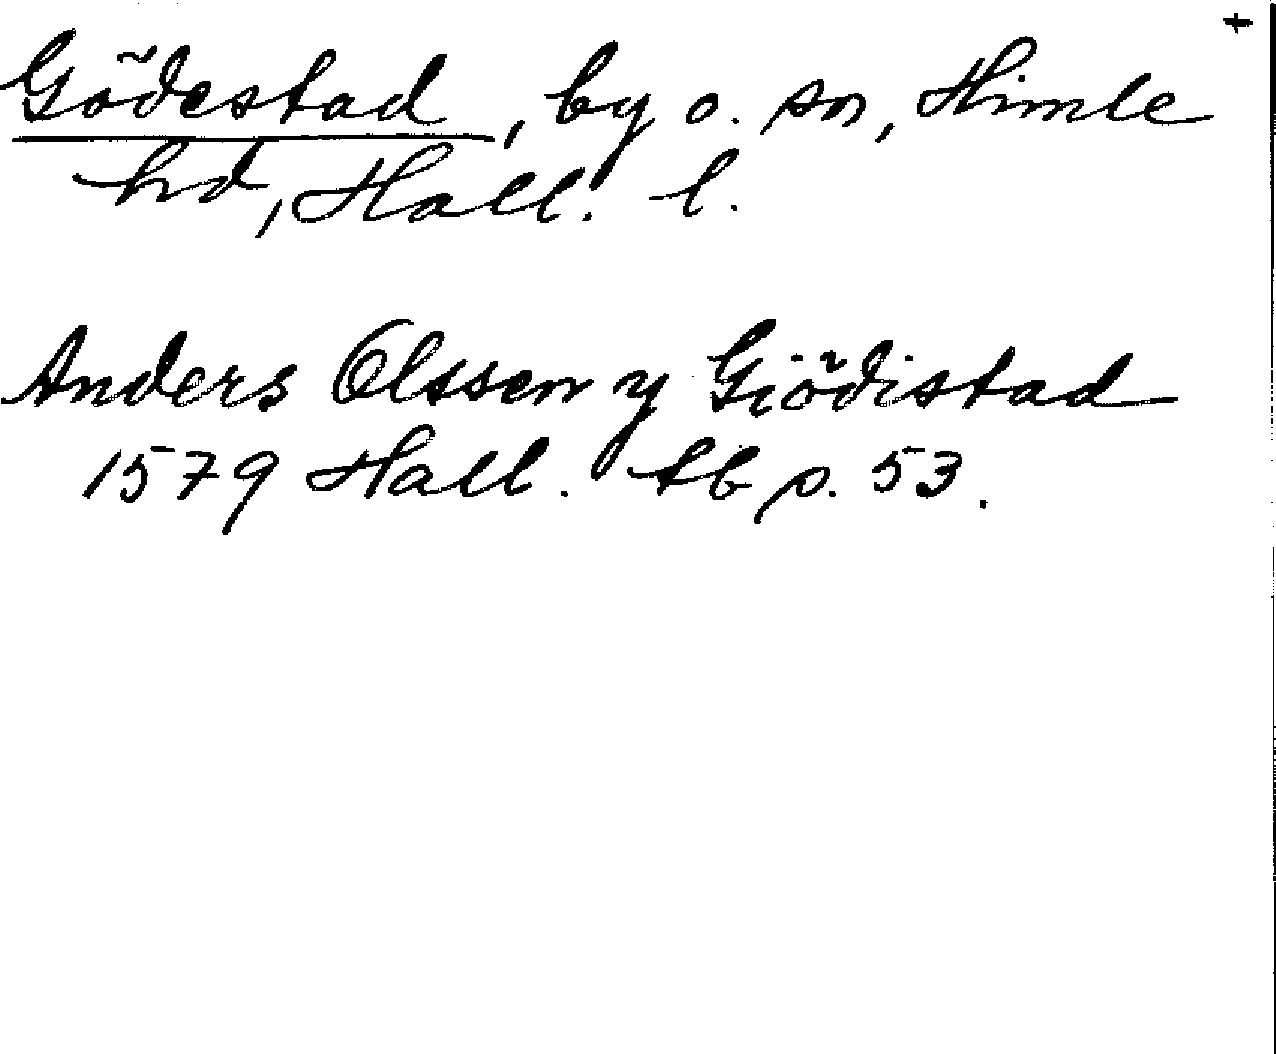 +
Gödestad, by o. sn, Himle
hd, Hall. l.
Anders Olssen y Giödistad
1579 Hall. tb p. 53.